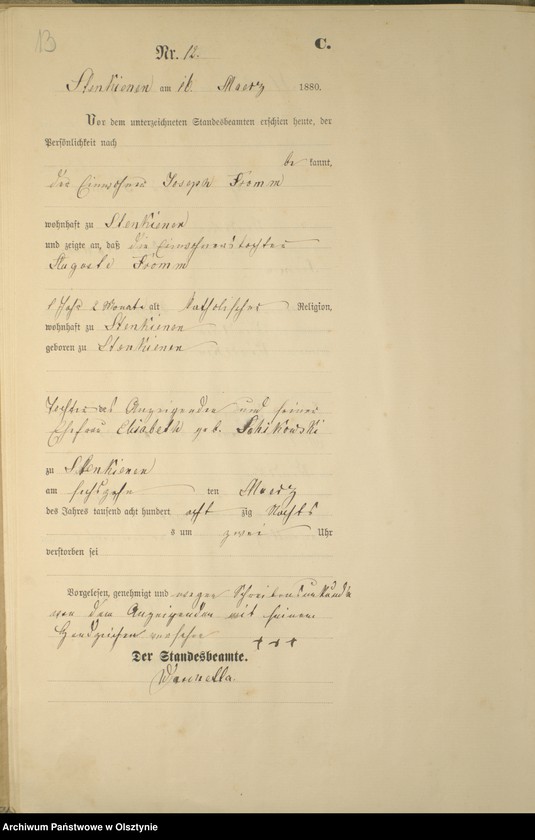 13
C.
Nr. 12.
Stenkienen am 16 Maerz 1880.
Vor dem unterzeichneten Standesbeamten erschien heute, der
Persönlichkeit nach
be kannt,
der Einwohner Joseph Fromm
wohnhaft zu Stenkienen
und zeigte an, daß die Einwohnerstochter
Auguste Fromm
1 Jahr 2 Monate alt katholischer Religion,
wohnhaft zu Stenkienen
geboren zu Stenkienen
Tochter des Anzeigenden und seiner
Ehefrau Elisabeth geb.
zu Stenkienen
am sechszehn ten Maerz
des Jahres tausend acht hundert acht zig Nachts
s um zwei Uhr
verstorben sei
Vorgelesen, genehmigt und wegen Schreibensunkunde
von dem Anzeigenden mit seinem
Handzeichen versehen +++
Der Standesbeamte.
Archiwum Państwowe w Olsztynie